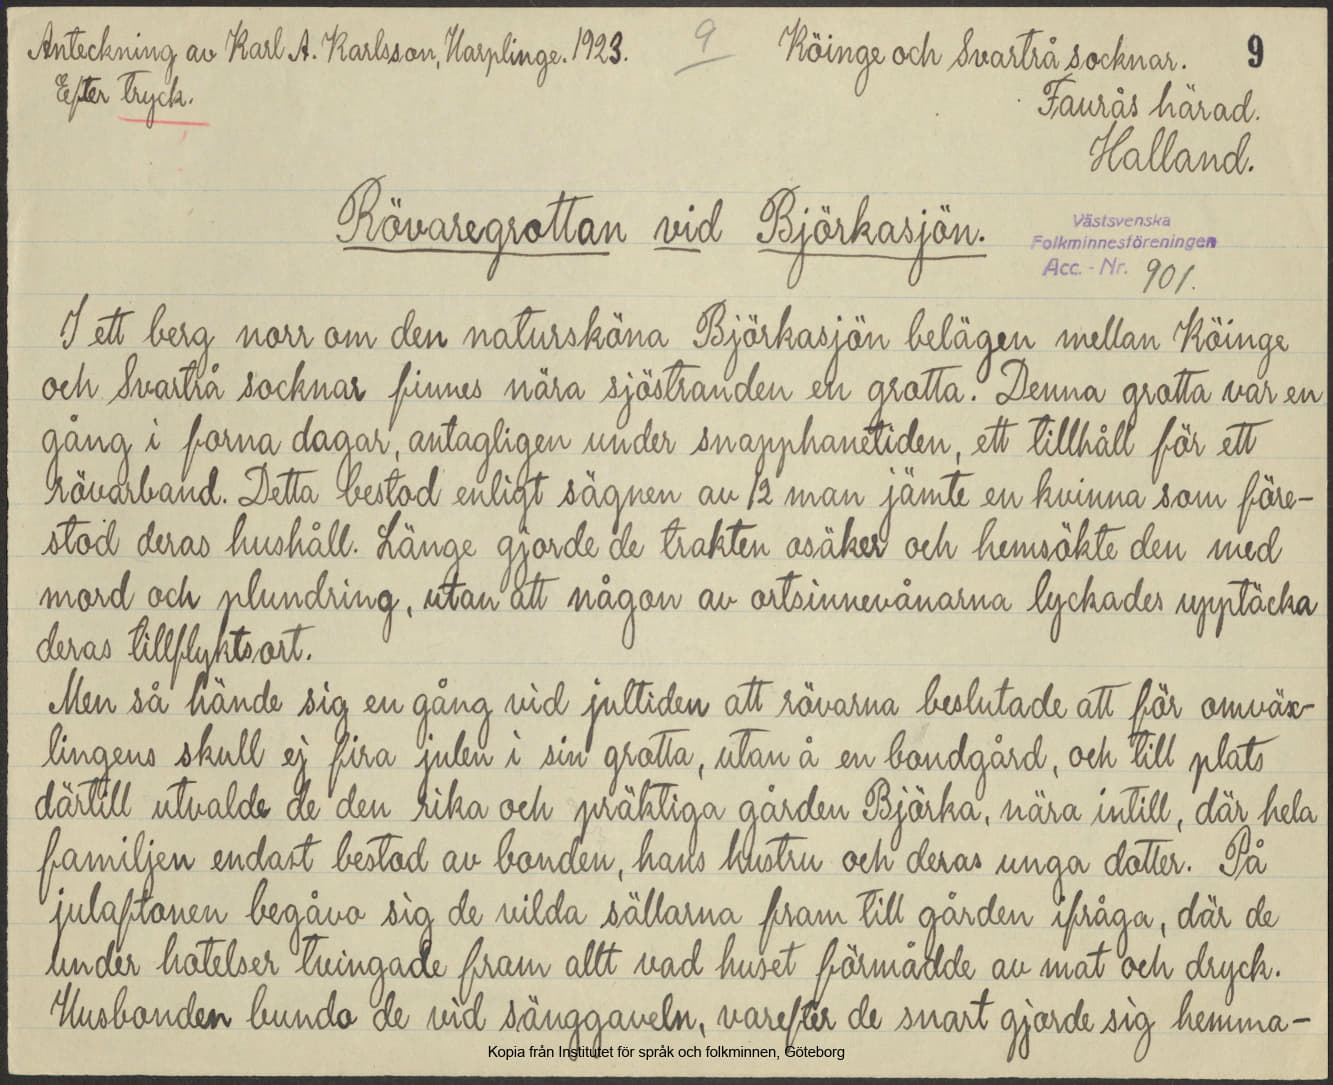 Anteckning av Karl A. Karlsson, Harplinge. 1923.
Efter tryck.
9
Köinge och Svartrå socknar.
9
Faurås härad.
Halland.
Rövaregrottan vid Björkasjön.
Västsvenska
Folkminnesföreningen
Acc. - Nr. 901.
I ett berg norr om den natursköna Björkasjön belägen mellan Köinge
och Svartrå socknar finnes nära sjöstranden en grotta. Denna grotta var en
gång i forna dagar, antagligen under snapphanetiden, ett tillhåll för ett
rövarband. Detta bestod enligt sägnen av 12 man jämte en kvinna som före-
stod deras hushåll. Länge gjorde de trakten osäker och hemsökte den med
mord och plundring, utan att någon av ortsinnevånarna lyckades upptäcka
deras tillflyktsort.
Men så hände sig en gång vid jultiden att rövarna beslutade att för omväx-
lingens skull ej fira julen i sin grotta, utan å en bondgård, och till plats
därtill utvalde de den rika och präktiga gården Björka, nära intill, där hela
familjen endast bestod av bonden, hans hustru och deras unga dotter. På
julaftonen begåvo sig de vilda sällarna fram till gården ifråga, där de
under hotelser tvingade fram allt vad huset förmådde av mat och dryck.
Husbonden bundo de vid sänggaveln, varefter de snart gjorde sig hemma-
Kopia från Institutet för språk och folkminnen, Göteborg